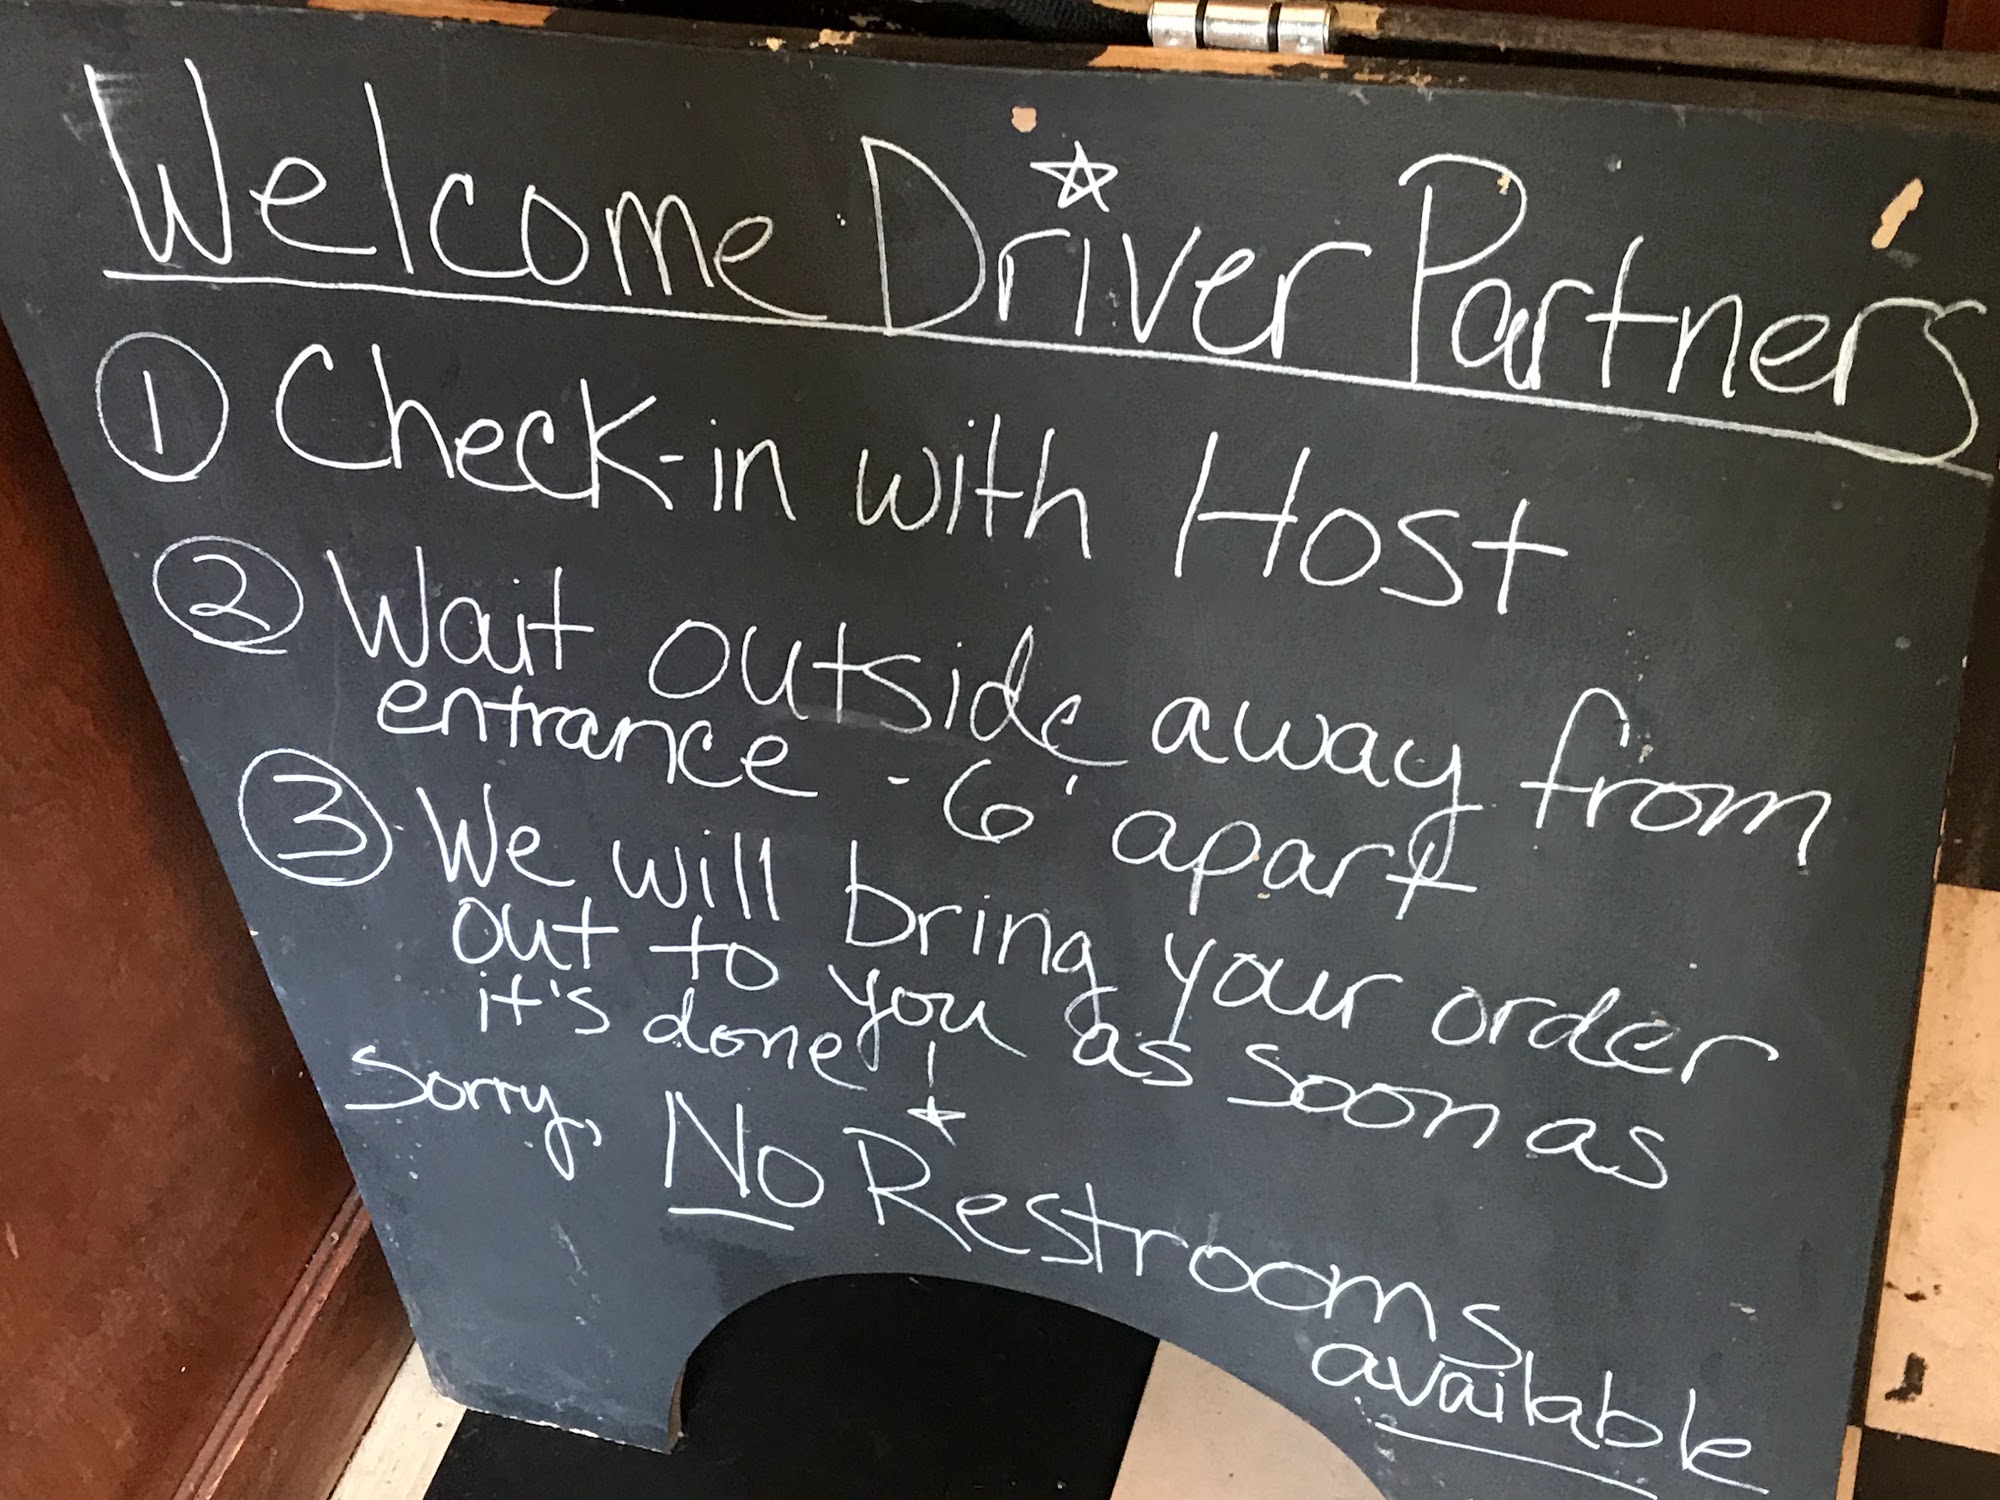 Welcome Driver Partners
① Check-in with Host
② Wait outside away from
entrance - 6' apart
③ We will bring your order
out to you as soon as
it's done!
Sorry, No Restrooms
available